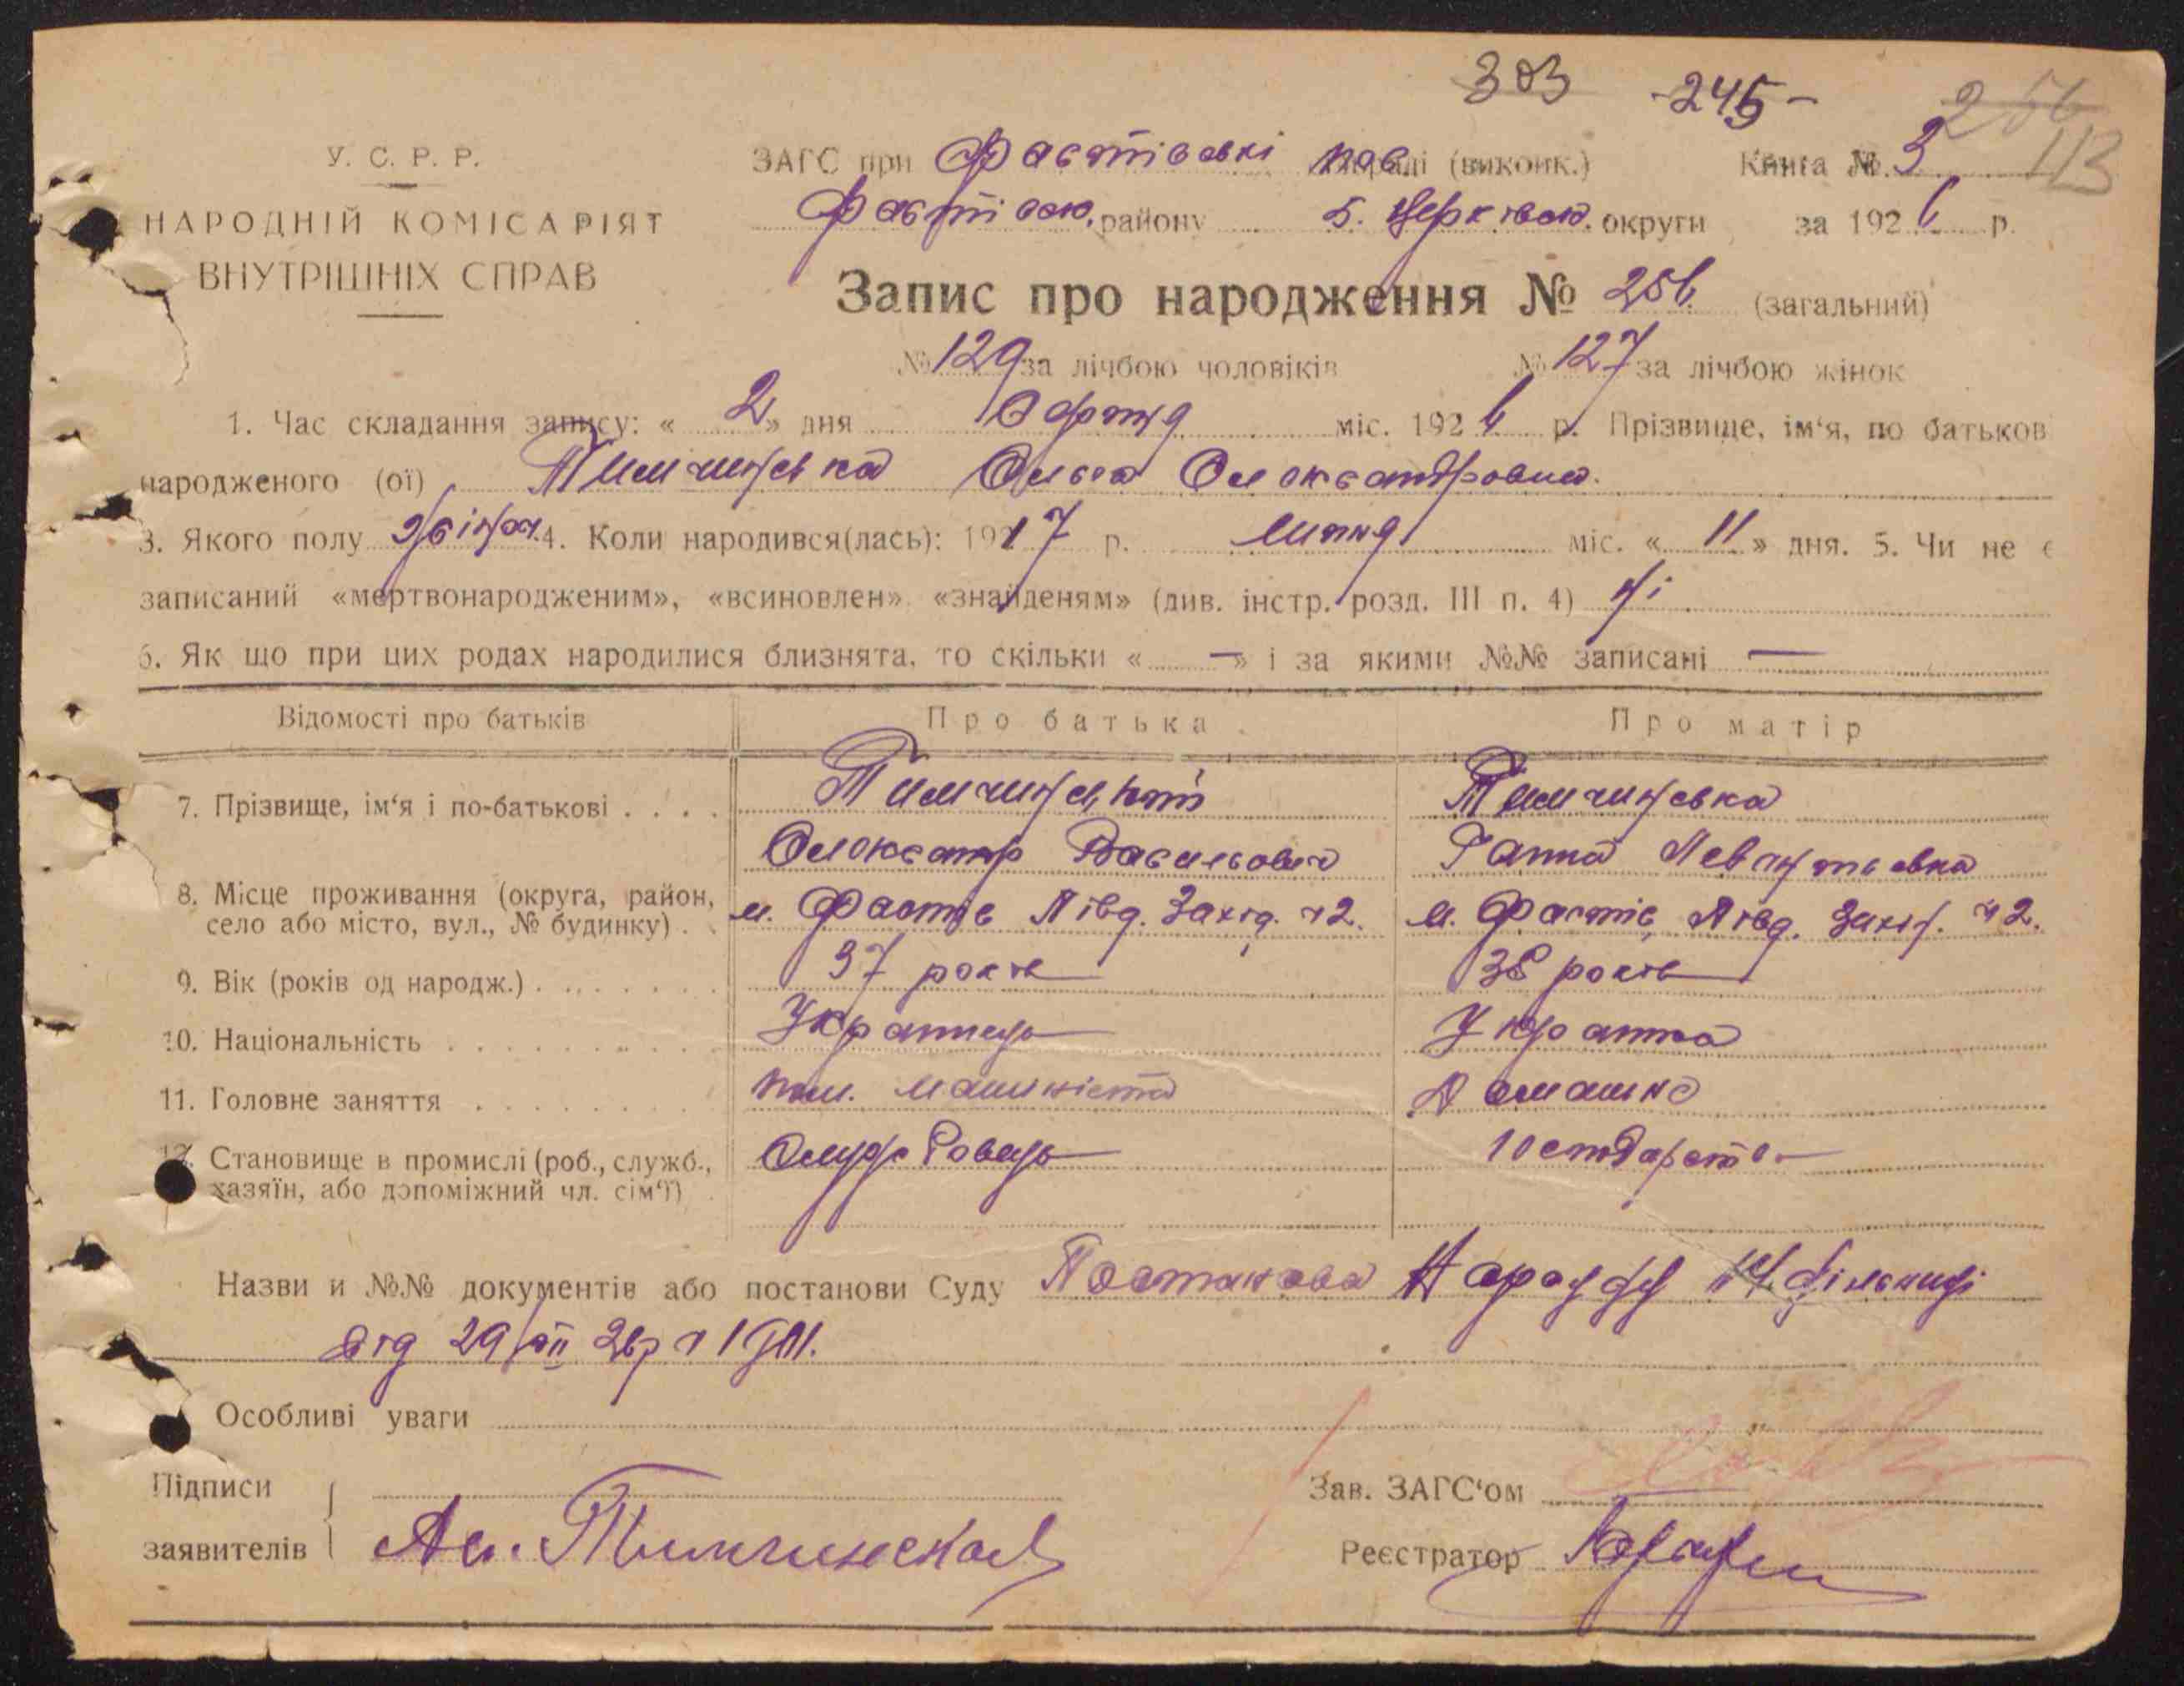 303 -245- 256
113
У. С. Р. Р.
НАРОДНІЙ КОМІСАРІЯТ
ВНУТРІШНІХ СПРАВ
ЗАГС при Фастівські (виконк.) Книга № 3
Фастівськ. району Б. Церківськ. округи за 1926 р.
Запис про народження № 256 (загальний)
№ 129 за лічбою чоловіків № 127 за лічбою жінок
1. Час складання запису: « 2 » дня міс. 1926 р. Прізвище, ім‘я, по батьков
народженого (ої) Тимчинська Ольга Олександровна
3. Якого полу жіноч. 4. Коли народився(лась): 1917 р. липня міс. « 11 » дня. 5. Чи не є
записаний «мертвонародженим», «всиновлен» «знайденям» (див. інстр. розд. III п. 4) ні
6. Як що при цих родах народилися близнята, то скільки « — » і за якими №№ записані —
Відомості про батьків Про батька Про матір
7. Прізвище, ім‘я і по-батькові . . . . Тимчинський Тимчинська
Олександр Васильович Ганна
8. Місце проживання (округа, район,
село або місто, вул., № будинку) . . м. Фастів Півд. Захід. ч 2. м. Фастів Півд. Захід. ч 2.
9. Вік (років од народж.) . . . . . . . . 37 років 38 років
10. Національність . . . . . . . . . . Українець Українка
11. Головне заняття . . . . . . . . пом. машиніста Домашнє
12. Становище в промислі (роб., служб., Службовець господарство
хазяїн, або допоміжний чл. сім‘ї)
Назви и №№ документів або постанови Суду Постанова Нарсуду дільниці
від 29/VII 26р
Особливі уваги
Підписи
заявителів Ал. Тимчинская
Зав. ЗАГС‘ом
Реєстратор